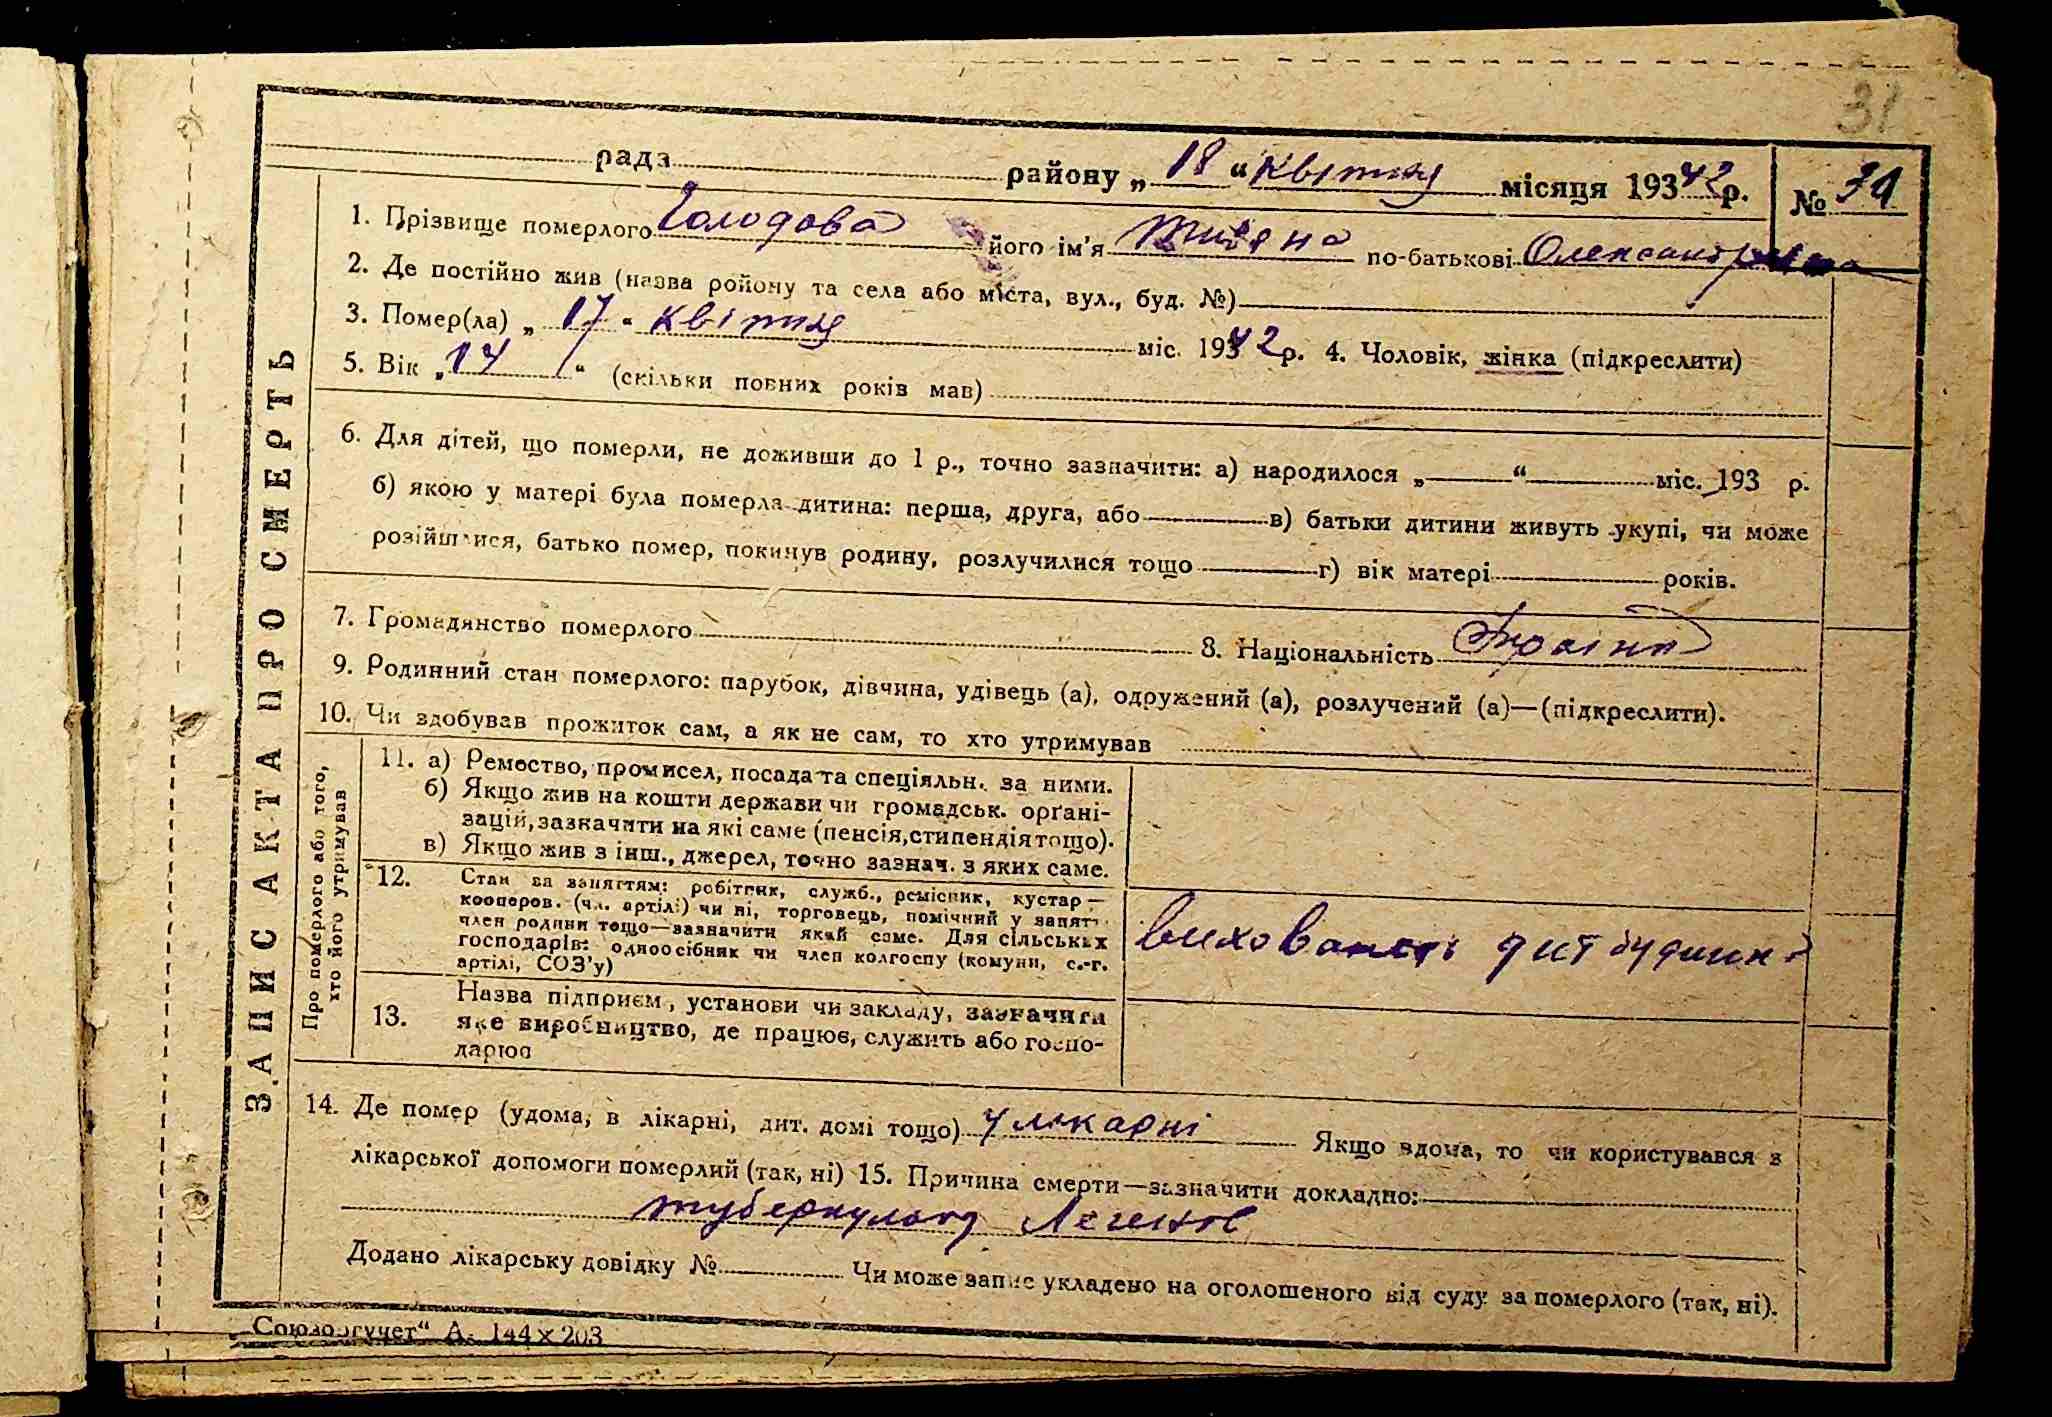 31
рада району „18“ квітня місяця 19342 р. № 31
1. Прізвище померлого Голодова його ім'я Титяна по-батькові
2. Де постійно жив (назва району та села або міста, вул., буд. №)
3. Помер(ла) „17“ квітня міс. 19342 р. 4. Чоловік, жінка (підкреслити)
5. Вік „14“ (скільки повних років мав)
6. Для дітей, що померли, не доживши до 1 р., точно зазначити: а) народилося „ “ міс. 193 р.
б) якою у матері була померла дитина: перша, друга, або в) батьки дитини живуть укупі, чи може
розійшлися, батько помер, покинув родину, розлучилися тощо г) вік матері років.
7. Громадянство померлого 8. Національність
9. Родинний стан померлого: парубок, дівчина, удівець (а), одружений (а), розлучений (а)—(підкреслити).
10. Чи здобував прожиток сам, а як не сам, то хто утримував
11. а) Ремество, промисел, посада та спеціяльн. за ними.
б) Якщо жив на кошти держави чи громадськ. орґані-
зацій, зазначити на які саме (пенсія, стипендія тощо).
в) Якщо жив з інш., джерел, точно зазнач. з яких саме.
12. Стан за заняттям: робітник, служб., ремісник, кустар—
кооперов. (чл. артілі) чи ні, торговець, помічний у занятт.
член родини тощо—зазначити який саме. Для сільських
господарів: одноосібник чи член колгоспу (комуни, с.-г.
артілі, СОЗ'у)
вихованець дитбудинк
13. Назва підприєм, установи чи закладу, зазначити
яке виробництво, де працює, служить або госпо-
дарює
14. Де помер (удома, в лікарні, дит. домі тощо) у лікарні Якщо вдома, то чи користувався з
лікарської допомоги померлий (так, ні) 15. Причина смерти—зазначити докладно:
туберкульоз Легенів
Додано лікарську довідку № Чи може запис укладено на оголошеного від суду за померлого (так, ні).
ЗАПИС АКТА ПРО СМЕРТЬ
Про померлого або того,
хто його утримував
Союзоргучет“ А. 144×203